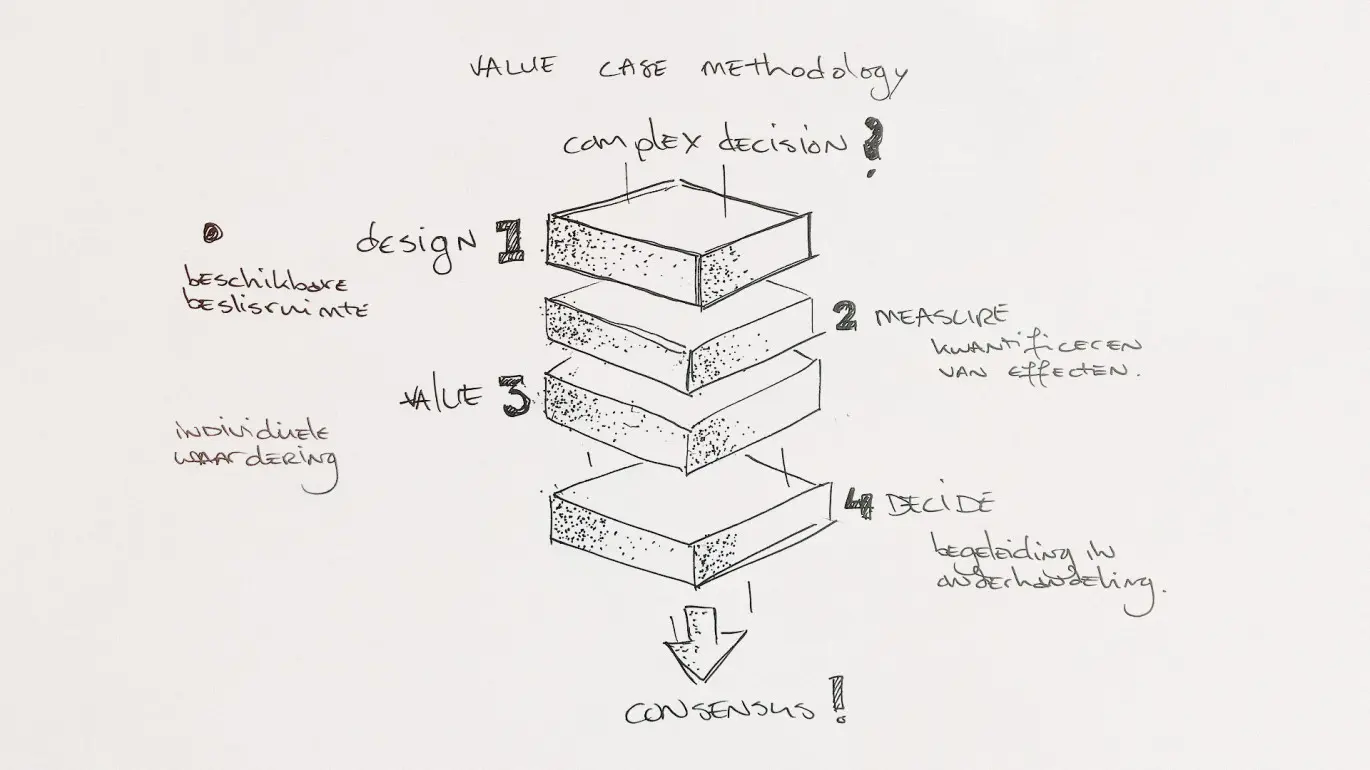 VALUE CASE METHODOLOGY
complex decision ?
design 1
beschikbare
beslisruimte
2 MEASURE
kwantificeren
van effecten.
VALUE 3
individuele
waardering
4 DECIDE
begeleiding in
onderhandeling.
CONSENSUS !